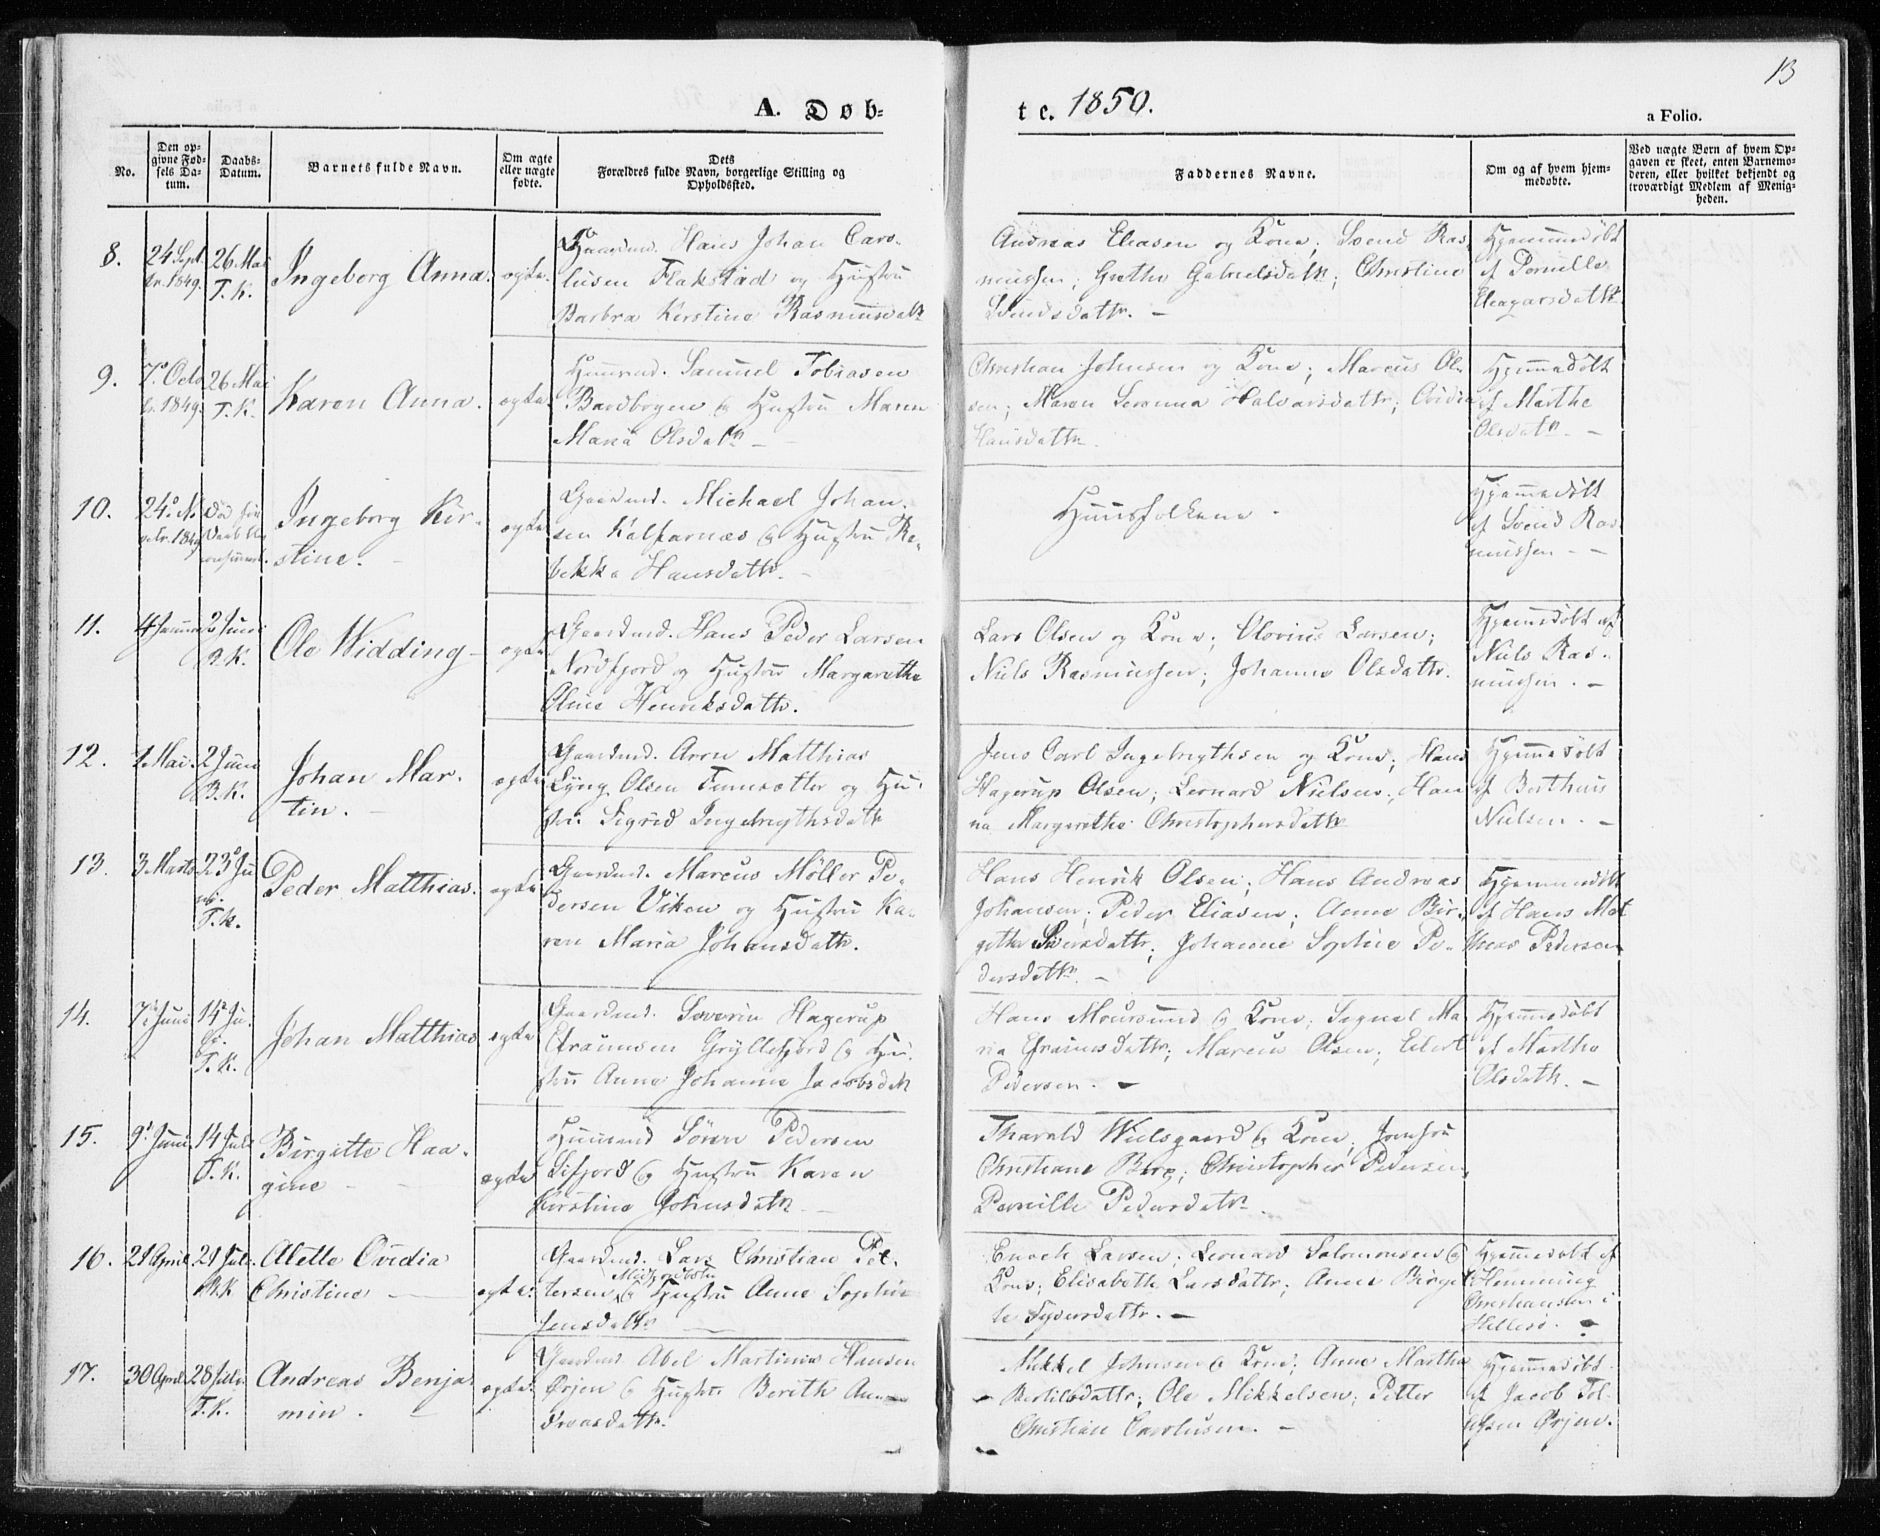 13
A. Døb-
te. 1850.
a Folio.
No.
Den op-
givne Fød-
sels Da-
tum.
Daabs-
Datum.
Barnets fulde Navn.
Om ægte
eller uægte
fødte.
Dets
Forældres fulde Navn, borgerlige Stilling og
Opholdssted.
Faddernes Navne.
Om og af hvem hjem-
medøbte.
Ved uægte Born af hvem Op-
gaven er skeet, enten Barnemo-
deren, eller hvilket bekjendt og
troværdigt Medlem af Menig-
heden.
8.
24 Sept.
br. 1849.
26 Mai
T. K.
Ingeborg Anna.
ægte.
Gaardmd. Hans Johan Caro-
lusen Flakstad og Hustru
Barbra Kirstine Rasmusdatr
Andreas Eliasen og Kone; Svend Ras-
mussen; Grethe Gabrielsdatr; Christine
Svendsdattr. –
Hjemmedøbt
af Pernille
Eleazarsdattr.
9.
7de Octo
br. 1849.
26 Mai
T. K.
Karen Anna.
ægte.
Huusmd. Samuel Tobiasen
Bardbogen og Hustru Maren
Maria Olsdatr –
Christian Johnsen og Kone; Marcus Ol-
sen; Maren Halvarsdattr;
Hansdattr.
Hjemmedøbt
af Marthe
Olsdatr. –
10.
24de No
vebr. 1849
Død før
Ingeborg Kir-
stine. –
ægte
Gaardmd. Michael Johan-
sen Kalfarnæs og Hustru Re-
bekka Hansdattr. –
Huusfolkene.
Hjemmedøbt
af Svend Ras
mussen – –
11.
4 Januar
2 Juni
B. K.
Ole Widding –
ægte
Gaardmd. Hans Peder Larsen
Nordfjord og Hustru Margarethe
Oline Henriksdattr.
Lars Olsen og Kone; Larsen;
Niels Rasmussen; Johanne Olsdattr.
Hjemmedøbt af
Niels Ras-
mussen. –
12.
1 Mai.
2 Juni
B. K.
Johan Mar-
tin. –
ægte
Gaardmd. Aron Matthias
Lyng Olsen og Hu-
stru Sigrid Ingebrigthsdatr
Jens Carl Ingebrigthsen og Kone; Hans
Hagerup Olsen; Leonard Nielsen; Han
na Margrethe Christophersdatr
Hjemmedøbt
af Berthus
Nielsen. –
13.
3 Marts
23de Ju
ni.
T. K.
Peder Matthias.
ægte
Gaardmd. Marcus Møller Pe-
dersen Viken og Hustru Ka-
ren Maria Johansdattr.
Hans Henrik Olsen; Hans Andreas
Johansen; Peder Eliasen; Anne Bir-
gitte Siversdattr; Johanne Sophie Pe-
dersdattr. –
Hjemmedøbt
af Hans Mat
thias Pedersen
14.
7de Juni
14de Ju-
li.
T. K.
Johan Matthias
ægte
Gaardmd. Severin Hagerup
Efraimsen Gryllefjord og Hu-
stru Anne Johanna Jacobsdatr
Hans Moursund og Kone; Signel Ma
ria Efraimsdattr; Marcus Olsen; Eilert
Pedersen. –
Hjemmedøbt
af Marthe
Olsdatr. –
15.
9de Juni
14 Juli
T. K.
Birgitte Haa-
gine –
ægte
Huusmd Søren Pedersen
Sifjord og Hustru Karen
Kirstine Johnsdatr –
Tharald Wielsgaard og Kone; Jomfru
Christiane Berg; Christopher Pedersen
Pernille Pedersdatr.
16.
21 April
21 Juli
B. K
Alette Ovidia
Christine –
ægte.
Gaardmd. Lars Christian Pet-
tersen og Hustru Anne Sophie
Jensdattr –
Enoch Larsen; Leonard Salomonsen og
Kone; Elisabeth Larsdattr; Anne Birgit
te Syversdattr. –
Hjemmedøbt af
Henning
Christiansen i
Hellesø. –
17.
30 April
28 Juli
T. K.
Andreas Benja
min. –
ægte.
Gaardmd. Abel Martinus Hansen
Ørjen og Hustru Berith An-
dreasdattr.
Mikkel Johnsen og Kone; Anne Martha
Bertilsdattr; Ole Mikkelsen; Petter
Christian Carolusen. –
Hjemmedøbt
af Jacob Tol-
lefsen Ørjen.